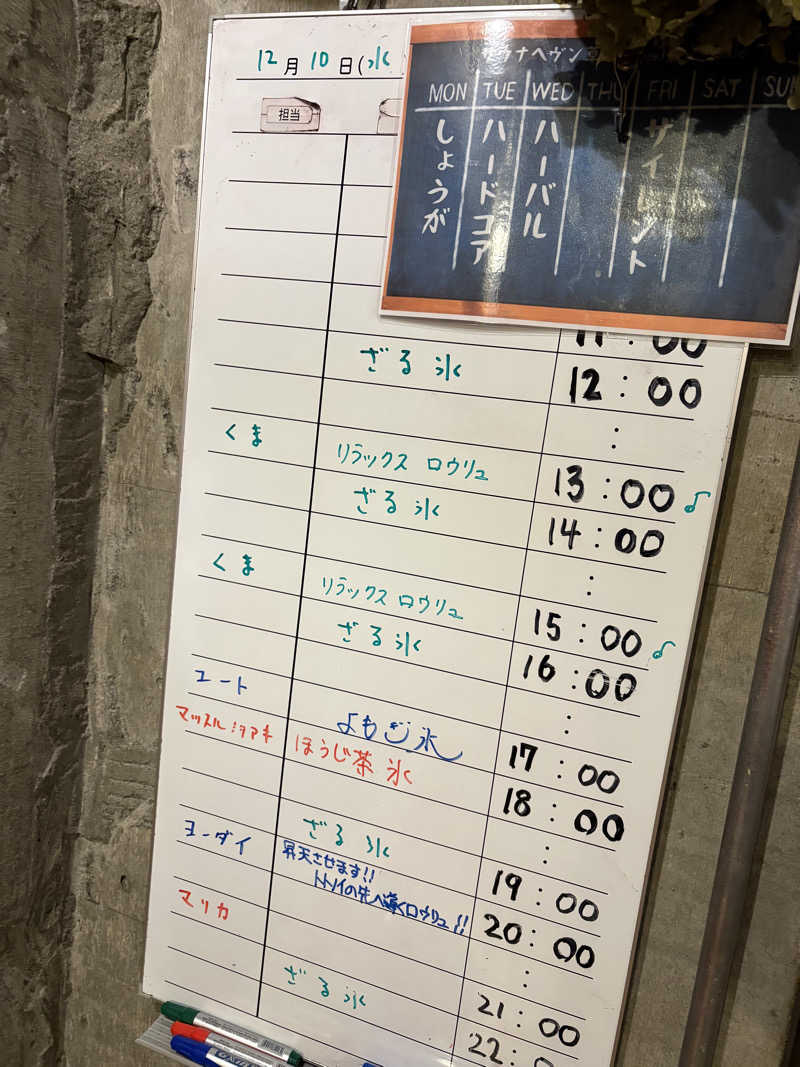 12月10日(水
担当
サウナヘヴン
MON TUE WED THU FRI SAT SUN
しょうが
ハードコア
ハーバル
サイレント
11:00
ざる氷 12:00
:
くま リラックス ロウリュ 13:00♪
ざる氷 14:00
:
くま リラックス ロウリュ 15:00♪
ざる氷 16:00
:
ユート よもぎ氷 17:00
ほうじ茶 氷 18:00
ざる氷 :
ヨーダイ 昇天させます!! 19:00
トトノイの先へ導くロウリュ!! 20:00
マリカ :
ざる氷 21:00
22:0